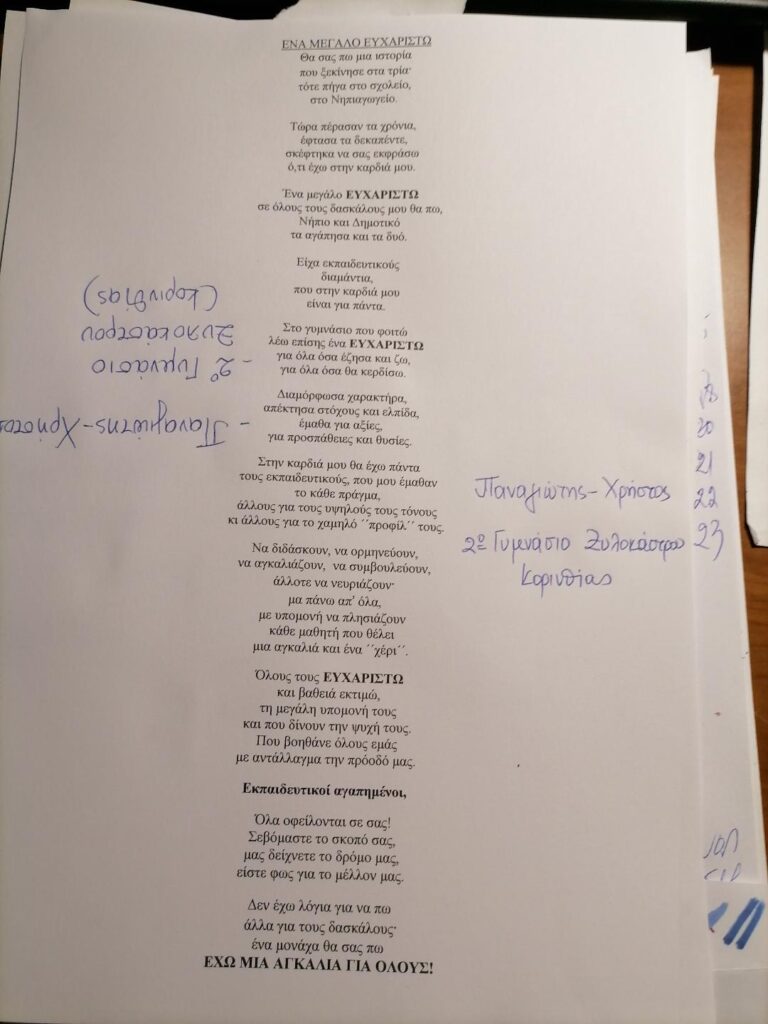 ΕΝΑ ΜΕΓΑΛΟ ΕΥΧΑΡΙΣΤΩ
Θα σας πω μια ιστορία
που ξεκίνησε στα τρία·
τότε πήγα στο σχολείο,
στο Νηπιαγωγείο.
Τώρα πέρασαν τα χρόνια,
έφτασα τα δεκαπέντε,
σκέφτηκα να σας εκφράσω
ό,τι έχω στην καρδιά μου.
Ένα μεγάλο ΕΥΧΑΡΙΣΤΩ
σε όλους τους δασκάλους μου θα πω,
Νήπιο και Δημοτικό
τα αγάπησα και τα δυό.
Είχα εκπαιδευτικούς
διαμάντια,
που στην καρδιά μου
είναι για πάντα.
Στο γυμνάσιο που φοιτώ
λέω επίσης ένα ΕΥΧΑΡΙΣΤΩ
για όλα όσα έζησα και ζω,
για όλα όσα θα κερδίσω.
Διαμόρφωσα χαρακτήρα,
απέκτησα στόχους και ελπίδα,
έμαθα για αξίες,
για προσπάθειες και θυσίες.
Στην καρδιά μου θα έχω πάντα
τους εκπαιδευτικούς, που μου έμαθαν
το κάθε πράγμα,
άλλους για τους υψηλούς τους τόνους
κι άλλους για το χαμηλό ΄΄προφίλ΄΄ τους.
Να διδάσκουν, να ορμηνεύουν,
να αγκαλιάζουν, να συμβουλεύουν,
άλλοτε να νευριάζουν·
μα πάνω απ' όλα,
με υπομονή να πλησιάζουν
κάθε μαθητή που θέλει
μια αγκαλιά και ένα ΄΄χέρι΄΄.
Όλους τους ΕΥΧΑΡΙΣΤΩ
και βαθειά εκτιμώ,
τη μεγάλη υπομονή τους
και που δίνουν την ψυχή τους.
Που βοηθάνε όλους εμάς
με αντάλλαγμα την πρόοδό μας.
Εκπαιδευτικοί αγαπημένοι,
Όλα οφείλονται σε σας!
Σεβόμαστε το σκοπό σας,
μας δείχνετε το δρόμο μας,
είστε φως για το μέλλον μας.
Δεν έχω λόγια για να πω
άλλα για τους δασκάλους·
ένα μονάχα θα σας πω
ΕΧΩ ΜΙΑ ΑΓΚΑΛΙΑ ΓΙΑ ΟΛΟΥΣ!
- Παναγιώτης-Χρήστος
- 2ο Γυμνάσιο
Ξυλοκάστρου
(Κορινθίας)
Παναγιώτης-Χρήστος
2ο Γυμνάσιο Ξυλοκάστρου
Κορινθίας
20
21
22
23